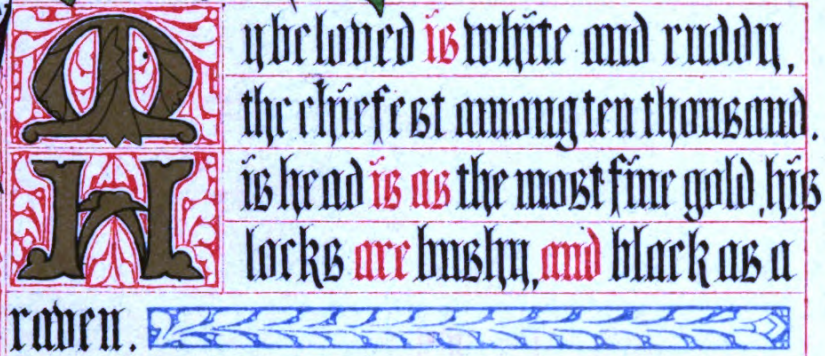 My beloved is white and ruddy,
the chiefest among ten thousand.
His head is as the most fine gold, his
locks are bushy, and black as a
raven.